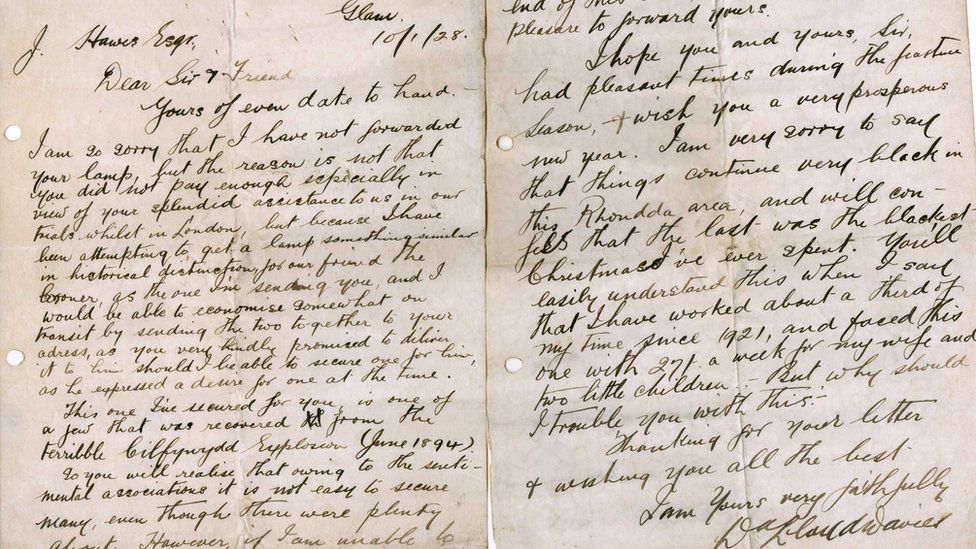 Glam.
10/1/28.
J. Hawes Esqr,
Dear Sir & Friend
Yours of even date to hand. -
I am so sorry that I have not forwarded
your lamp, but the reason is not that
you did not pay enough especially in
view of your splendid assistance to us in our
trials whilst in London, but because I have
been attempting to get a lamp something similar
in historical distinction, for our friend the
Coroner, as the one I'm sending you, and I
would be able to economise somewhat on
transit by sending the two together to your
adress, as you very kindly promised to deliver
it to him should I be able to secure one for him,
as he expressed a desire for one at the time.
This one I've secured for you, is one of
a few that was recovered from the
terribble Cilfynydd Explosion (June 1894)
So you will realise that owing to the senti-
mental associations it is not easy to secure
many, even though there were plenty
about. However, if I am unable to
end of this
pleasure to forward yours.
I hope you and yours, Sir,
had pleasant times during the festive
Season, & wish you a very prosperous
new year. I am very sorry to say
that things continue very black in
this Rhondda area, and will con-
fess that the last was the blackest
Christmas I've ever spent. You'll
easily understand this when I say
that I have worked about a third of
my time since 1921, and faced this
one with 27/. a week for my wife and
two little children. - But why should
I trouble you with this. -
Thanking for your letter
& wishing you all the best
I am Yours very faithfully
D Lloyd Davies